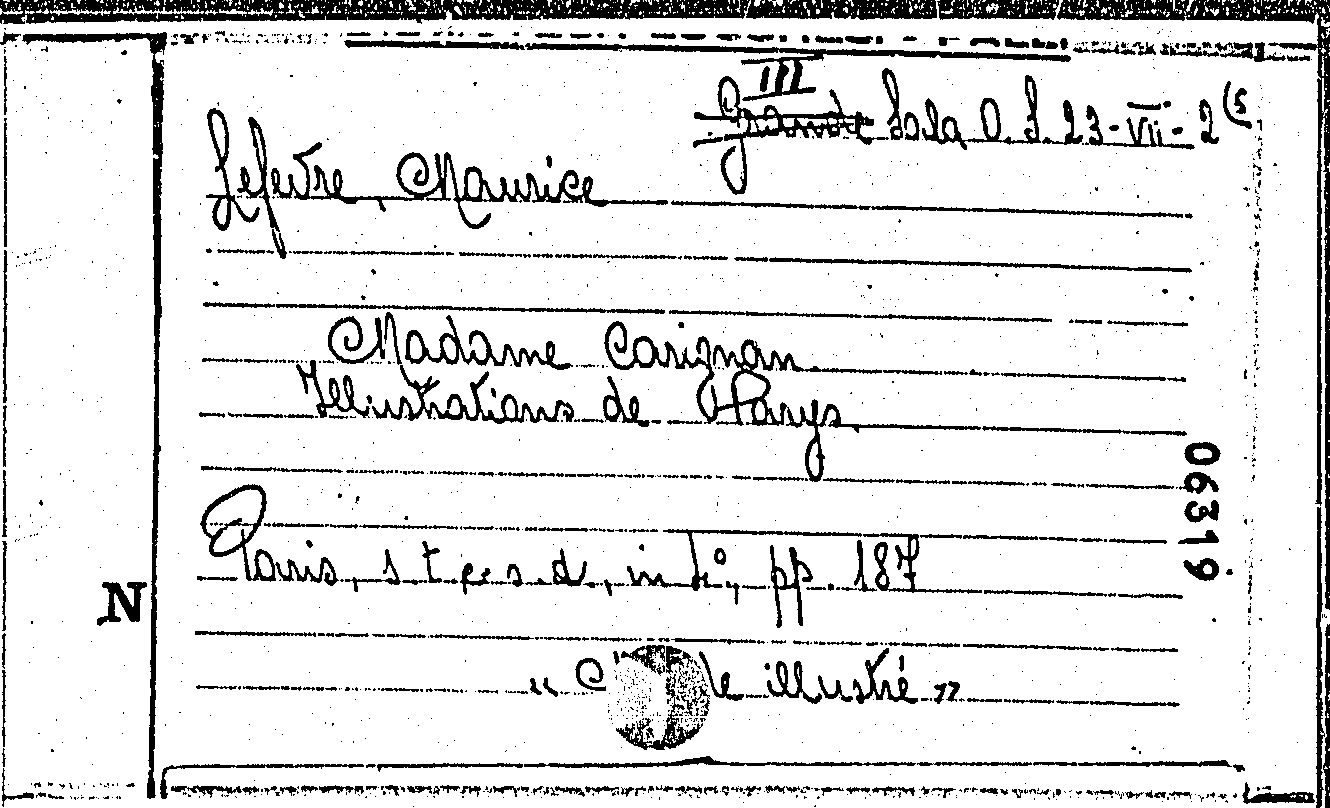 III
Grande Sala O. S. 23-VII-2(5
Lefevre, Maurice
Madame Carignan
Illustrations de Parys.
06319
Paris, s t e s. d., in 4º, pp. 187
N
illustré »